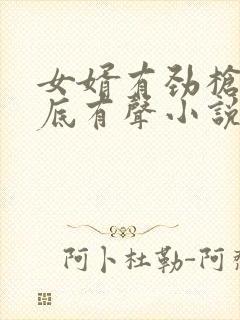 女婿有劲槍
底有聲小說
阿卜杜勒-阿